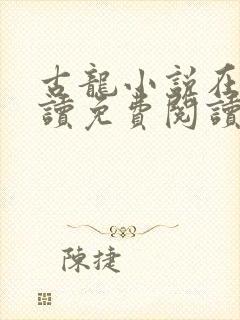 古龍小說在
讀免費閱讀
陳捷